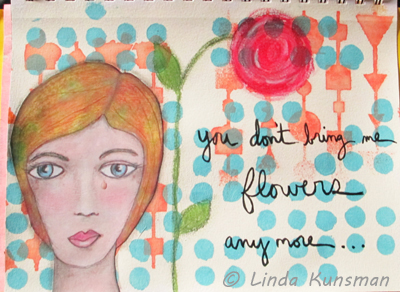 you don't bring me
flowers
any more...
© Linda Kunsman